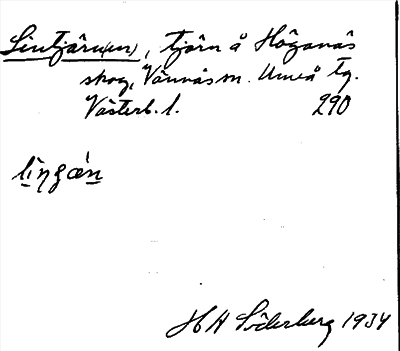 Lintjärn(en), tjärn å Höganäs
skog, Vännäs sn. Umeå tg.
Västerb. l. 290
HH Söderberg 1934